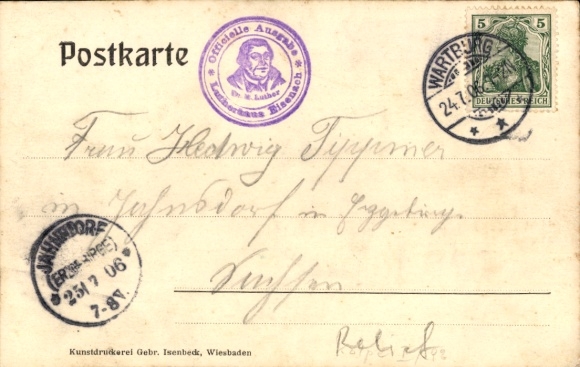 Postkarte
* Officielle Ausgabe *
Dr. M. Luther
Lutherhaus Eisenach
WARTBURG
24.7.06
5 5
DEUTSCHES REICH
Frau Hedwig Tippmer
in Jahnsdorf in Erzgebirg.
Sachsen
JAHNSDORF
(ERZGEBIRGE)
25/7 06
7-8V.
Relief
Kunstdruckerei Gebr. Isenbeck, Wiesbaden